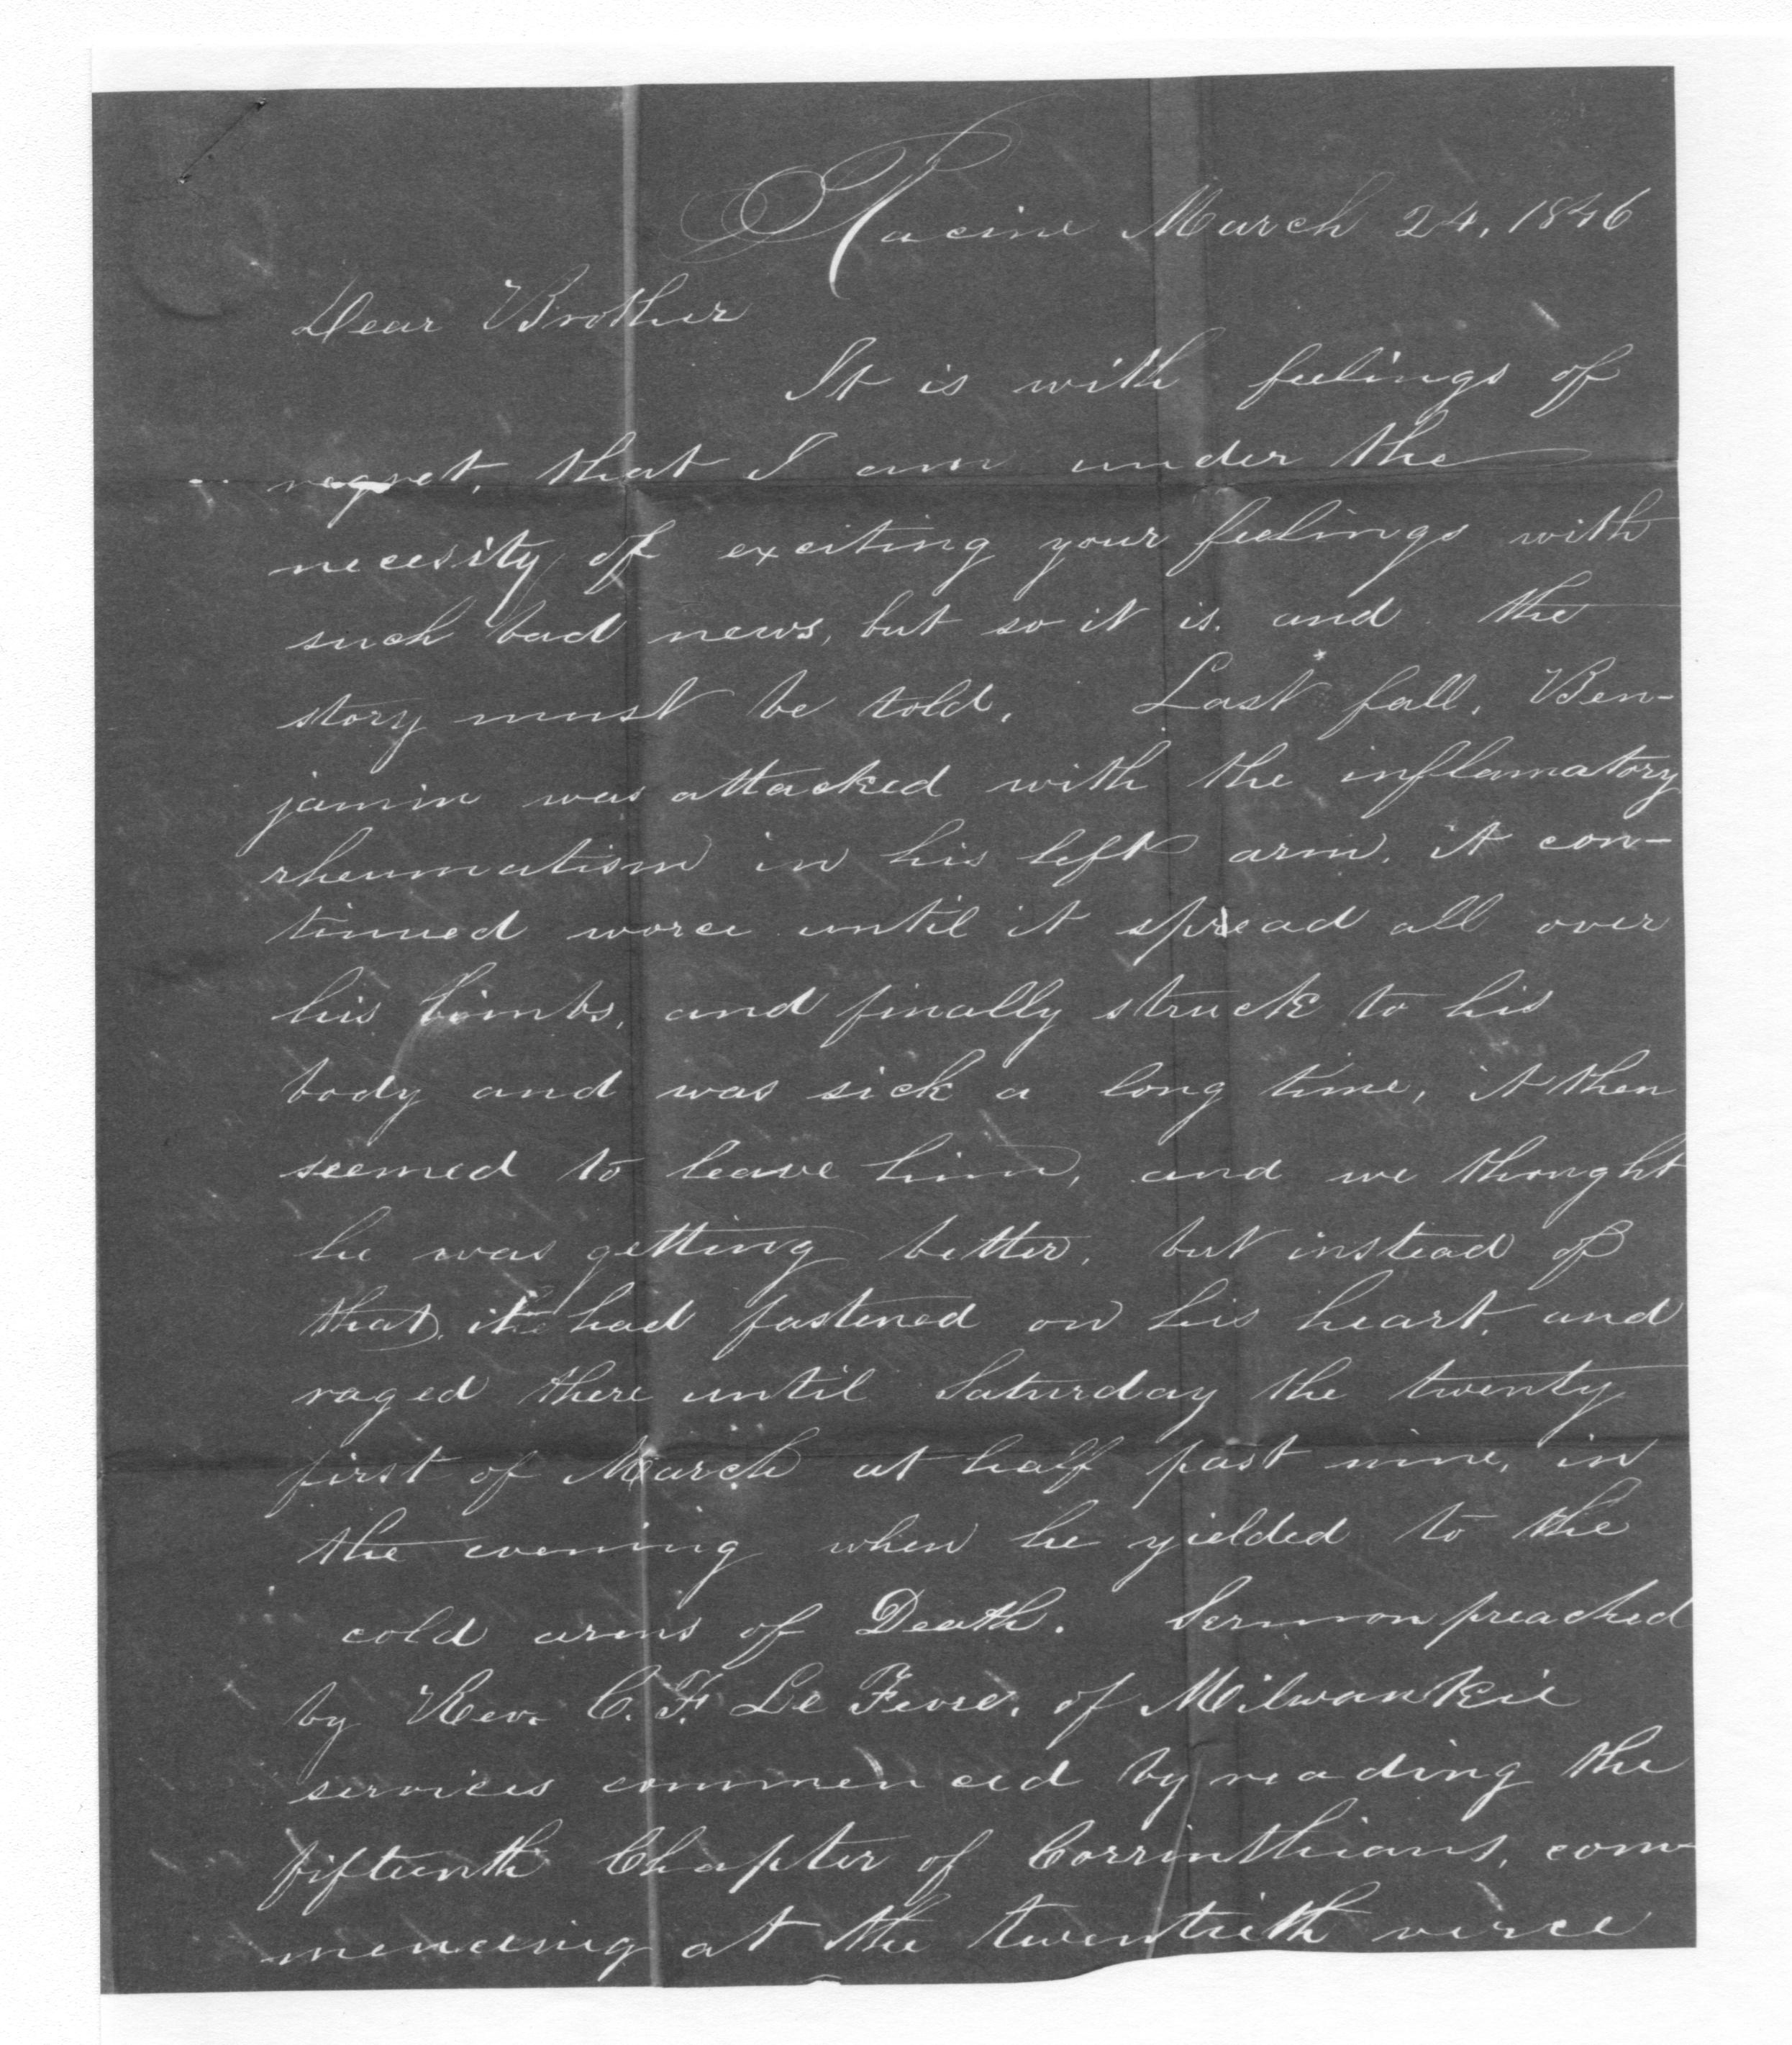 Racine March 24, 1846
Dear Brother
It is with feelings of
regret, that I am under the
necesity of exciting your feelings with
such bad news, but so it is, and the
story must be told, Last fall, Ben-
jamin was attacked with the inflamatory
rheumatism in his left arm, it con-
tinued worce until it spread all over
his limbs, and finally struck to his
body and was sick a long time, it then
seemed to leave him, and we thought
he was getting better, but instead of
that, it had fastened on his heart, and
raged there until Saturday the twenty
first of March at half past nine, in
the evening when he yielded to the
cold arms of Death. Sermon preached
by Rev. C. F. Le Fevre, of Milwaukie
services commenced by reading the
fifteenth Chapter of Corrinthians, com-
mencing at the twentieth verce